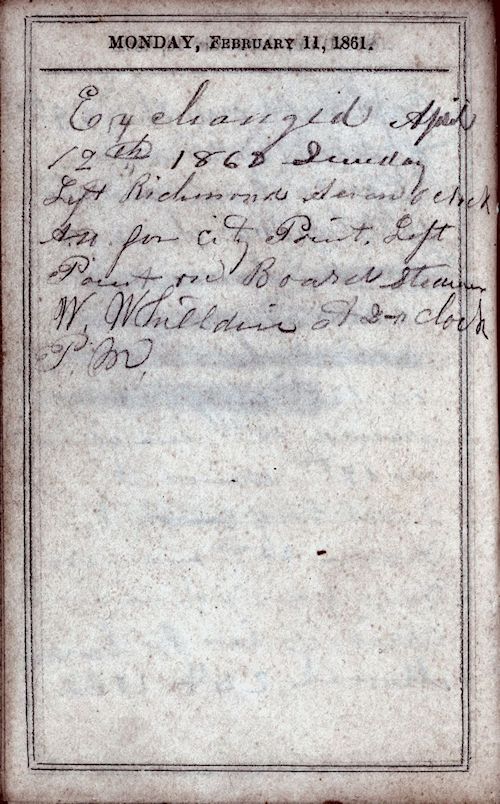 MONDAY, FEBRUARY 11, 1861.
Exchangid April
12th 1863 Sunday
Left Richmond Seven oclock
AM for City Point. Left
Point on Board Steamer
W. Whilldin at 2 oclock
P. M.